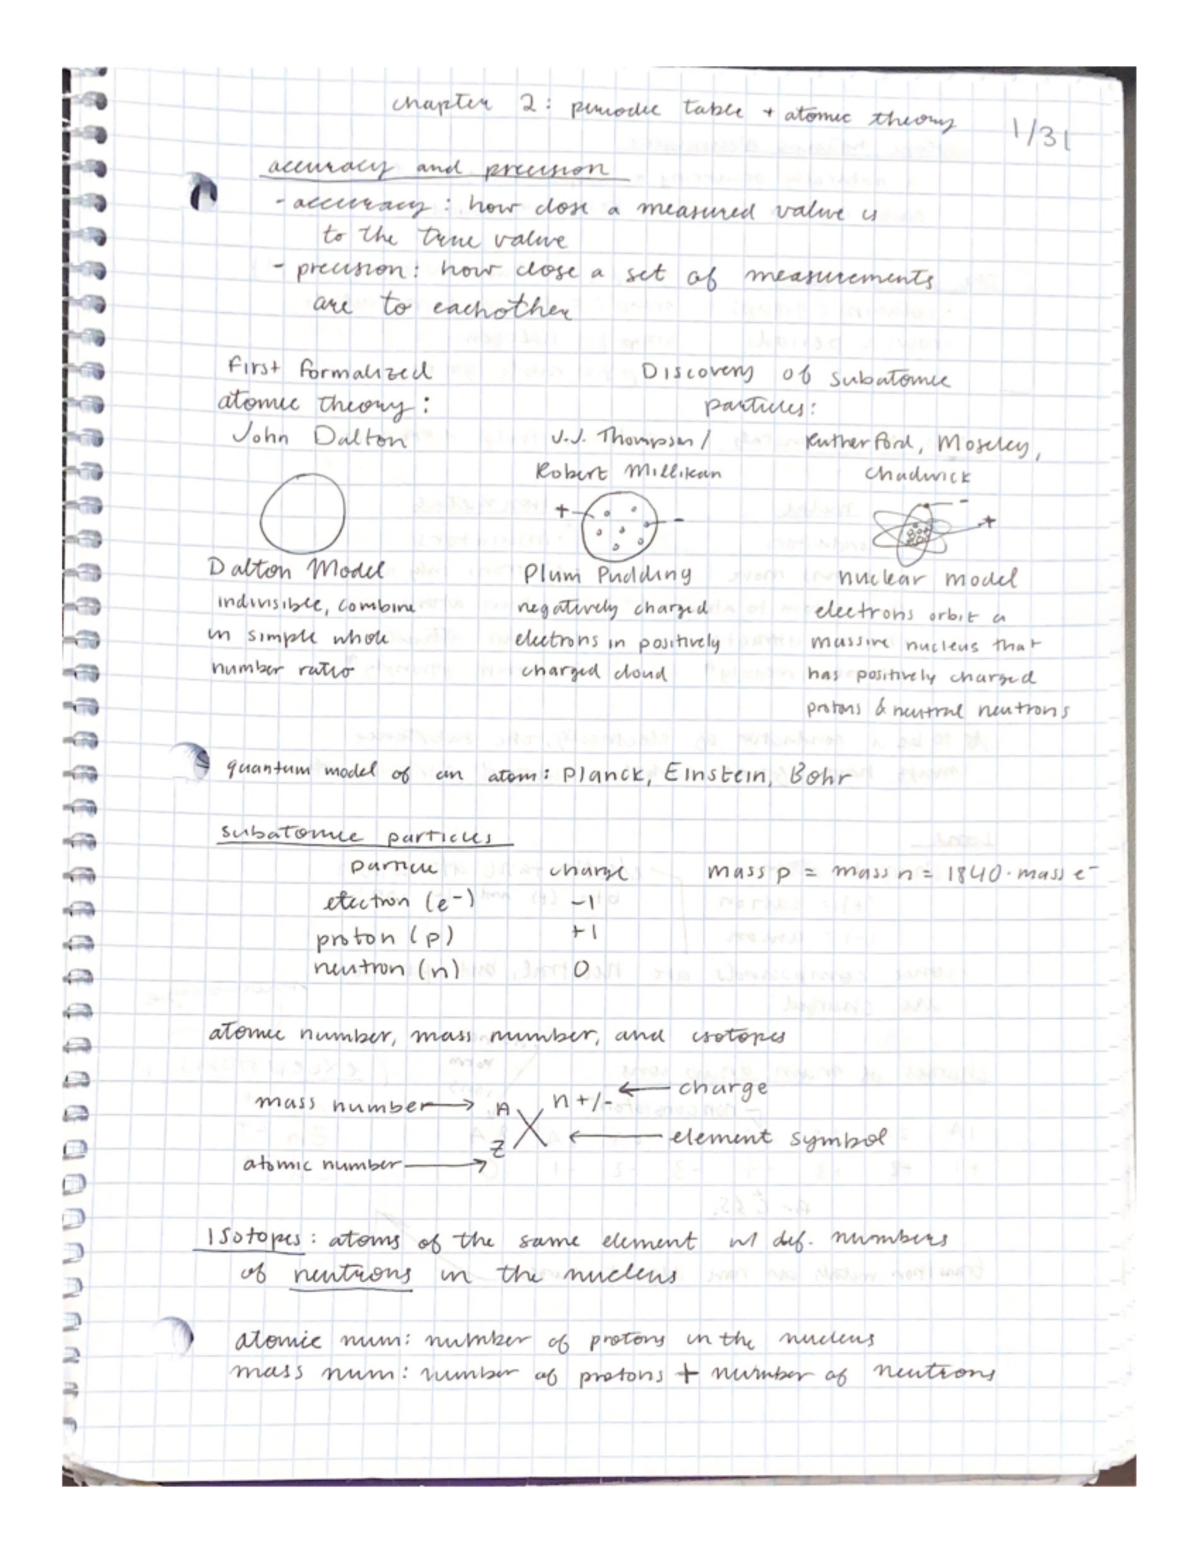 chapter 2: periodic table + atomic theory
1/31
accuracy and precision
- accuracy: how close a measured value is
to the true value
- precision: how close a set of measurements
are to eachother
First formalized
atomic theory:
John Dalton
Discovery of subatomic
particles:
J.J. Thompson/
Robert Millikan
Rutherford, Moseley,
Chadwick
+
-
-
+
Dalton Model
indivisible, combine
in simple whole
number ratio
Plum Pudding
negatively charged
electrons in positively
charged cloud
nuclear model
electrons orbit a
massive nucleus that
has positively charged
protons & neutral neutrons
quantum model of an atom: Planck, Einstein, Bohr
subatomic particles
particle charge mass p = mass n = 1840 · mass e⁻
electron (e⁻) -1
proton (p) +1
neutron (n) 0
atomic number, mass number, and isotopes
mass number → A n+/- ← charge
X ← element symbol
atomic number → Z
Isotopes: atoms of the same element w/ dif. numbers
of neutrons in the nucleus
atomic num: number of protons in the nucleus
mass num: number of protons + number of neutrons